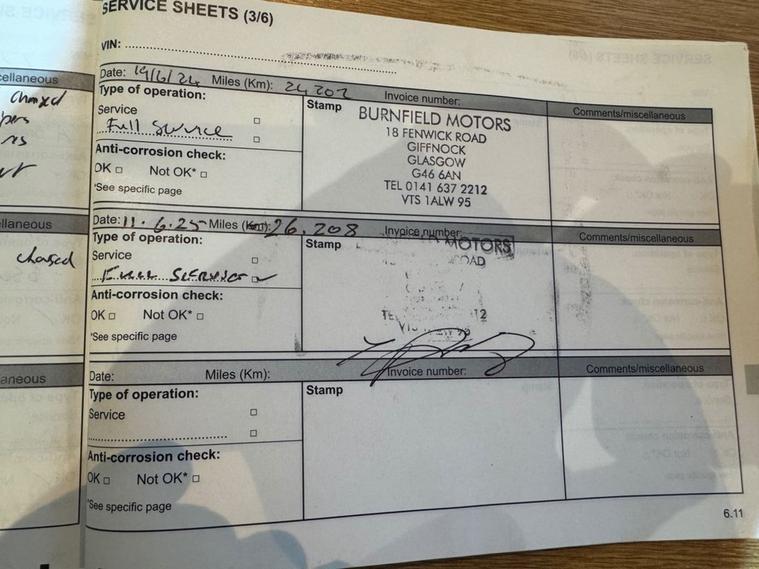 SERVICE SHEETS (3/6)
VIN:
cellaneous
changed
Date: 19/6/24 Miles (Km): 24 202 Invoice number: Comments/miscellaneous
Type of operation:
Service
Full Service
Anti-corrosion check:
OK □ Not OK* □
*See specific page
Stamp
BURNFIELD MOTORS
18 FENWICK ROAD
GIFFNOCK
GLASGOW
G46 6AN
TEL 0141 637 2212
VTS 1ALW 95
ellaneous
changed
Date: 11.6.25 Miles (Km): 26,208 Invoice number: Comments/miscellaneous
Type of operation:
Service
Full Service
Anti-corrosion check:
OK □ Not OK* □
*See specific page
Stamp
MOTORS
OAD
12
aneous
Date: Miles (Km): Invoice number: Comments/miscellaneous
Type of operation:
Service
Anti-corrosion check:
OK □ Not OK* □
*See specific page
Stamp
6.11